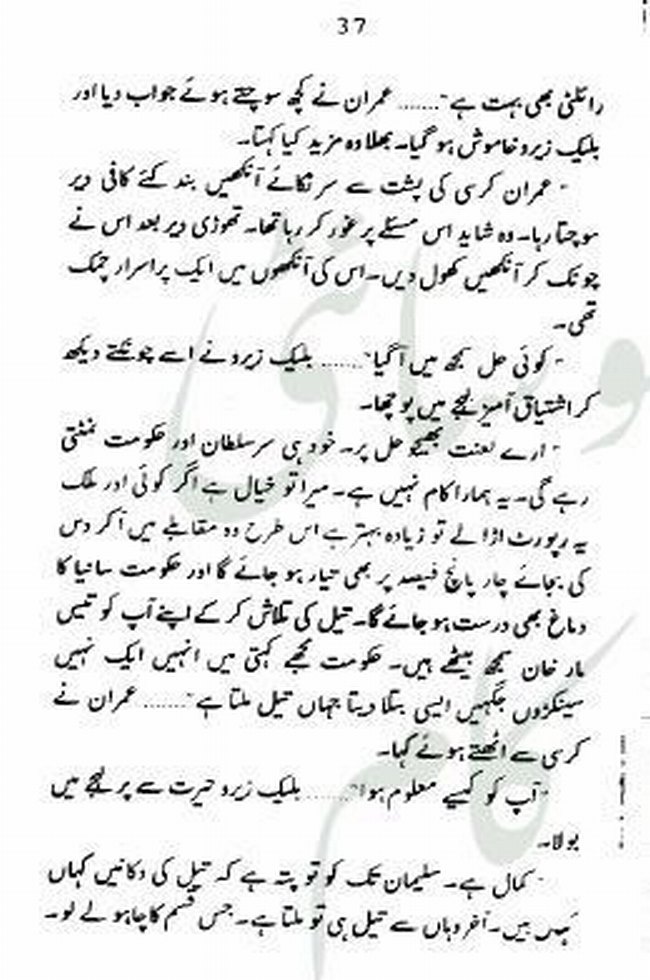 37
رائلٹی بھی بہت ہے"....... عمران نے کچھ سوچتے ہوئے جواب دیا اور
بلیک زیرو خاموش ہو گیا۔ بھلا وہ مزید کیا کہتا۔
"عمران کرسی کی پشت سے سر ٹکائے آنکھیں بند کئے کافی دیر
سوچتا رہا۔ وہ شاید اس مسئلے پر غور کر رہا تھا۔ تھوڑی دیر بعد اس نے
چونک کر آنکھیں کھول دیں۔ اس کی آنکھوں میں ایک پراسرار چمک
تھی۔
"کوئی حل سمجھ میں آ گیا"....... بلیک زیرو نے اسے چونکتے دیکھ
کر اشتیاق آمیز لہجے میں پوچھا۔
"ارے لعنت بھیجو حل پر۔ خود ہی سر سلطان اور حکومت نمٹتی
رہے گی۔ یہ ہمارا کام نہیں ہے۔ میرا تو خیال ہے اگر کوئی اور ملک
یہ رپورٹ اڑا لے تو زیادہ بہتر ہے اس طرح وہ مقابلے میں آ کر دس
کی بجائے چار پانچ فیصد پر بھی تیار ہو جائے گا اور حکومت سانیا کا
دماغ بھی درست ہو جائے گا۔ تیل کی تلاش کر کے اپنے آپ کو تیس
مار خان سمجھ بیٹھے ہیں۔ حکومت مجھے کہتی میں انہیں ایک نہیں
سینکڑوں جگہیں ایسی بتلا دیتا جہاں تیل ملتا ہے"....... عمران نے
کرسی سے اٹھتے ہوئے کہا۔
"آپ کو کیسے معلوم ہوا"....... بلیک زیرو حیرت سے پر لہجے میں
بولا۔
"کمال ہے۔ سلیمان تک کو تو پتہ ہے کہ تیل کی دکانیں کہاں
کہاں ہیں۔ آخر وہاں سے تیل ہی تو ملتا ہے۔ جس قسم کا چاہو لے لو۔